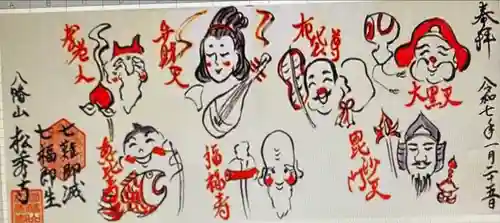 奉拝
令和七年一月二十五日
大黒天
毘沙門天
布袋尊
福禄寿
弁財天
寿老人
七難即滅
七福即生
八幡山
松秀寺